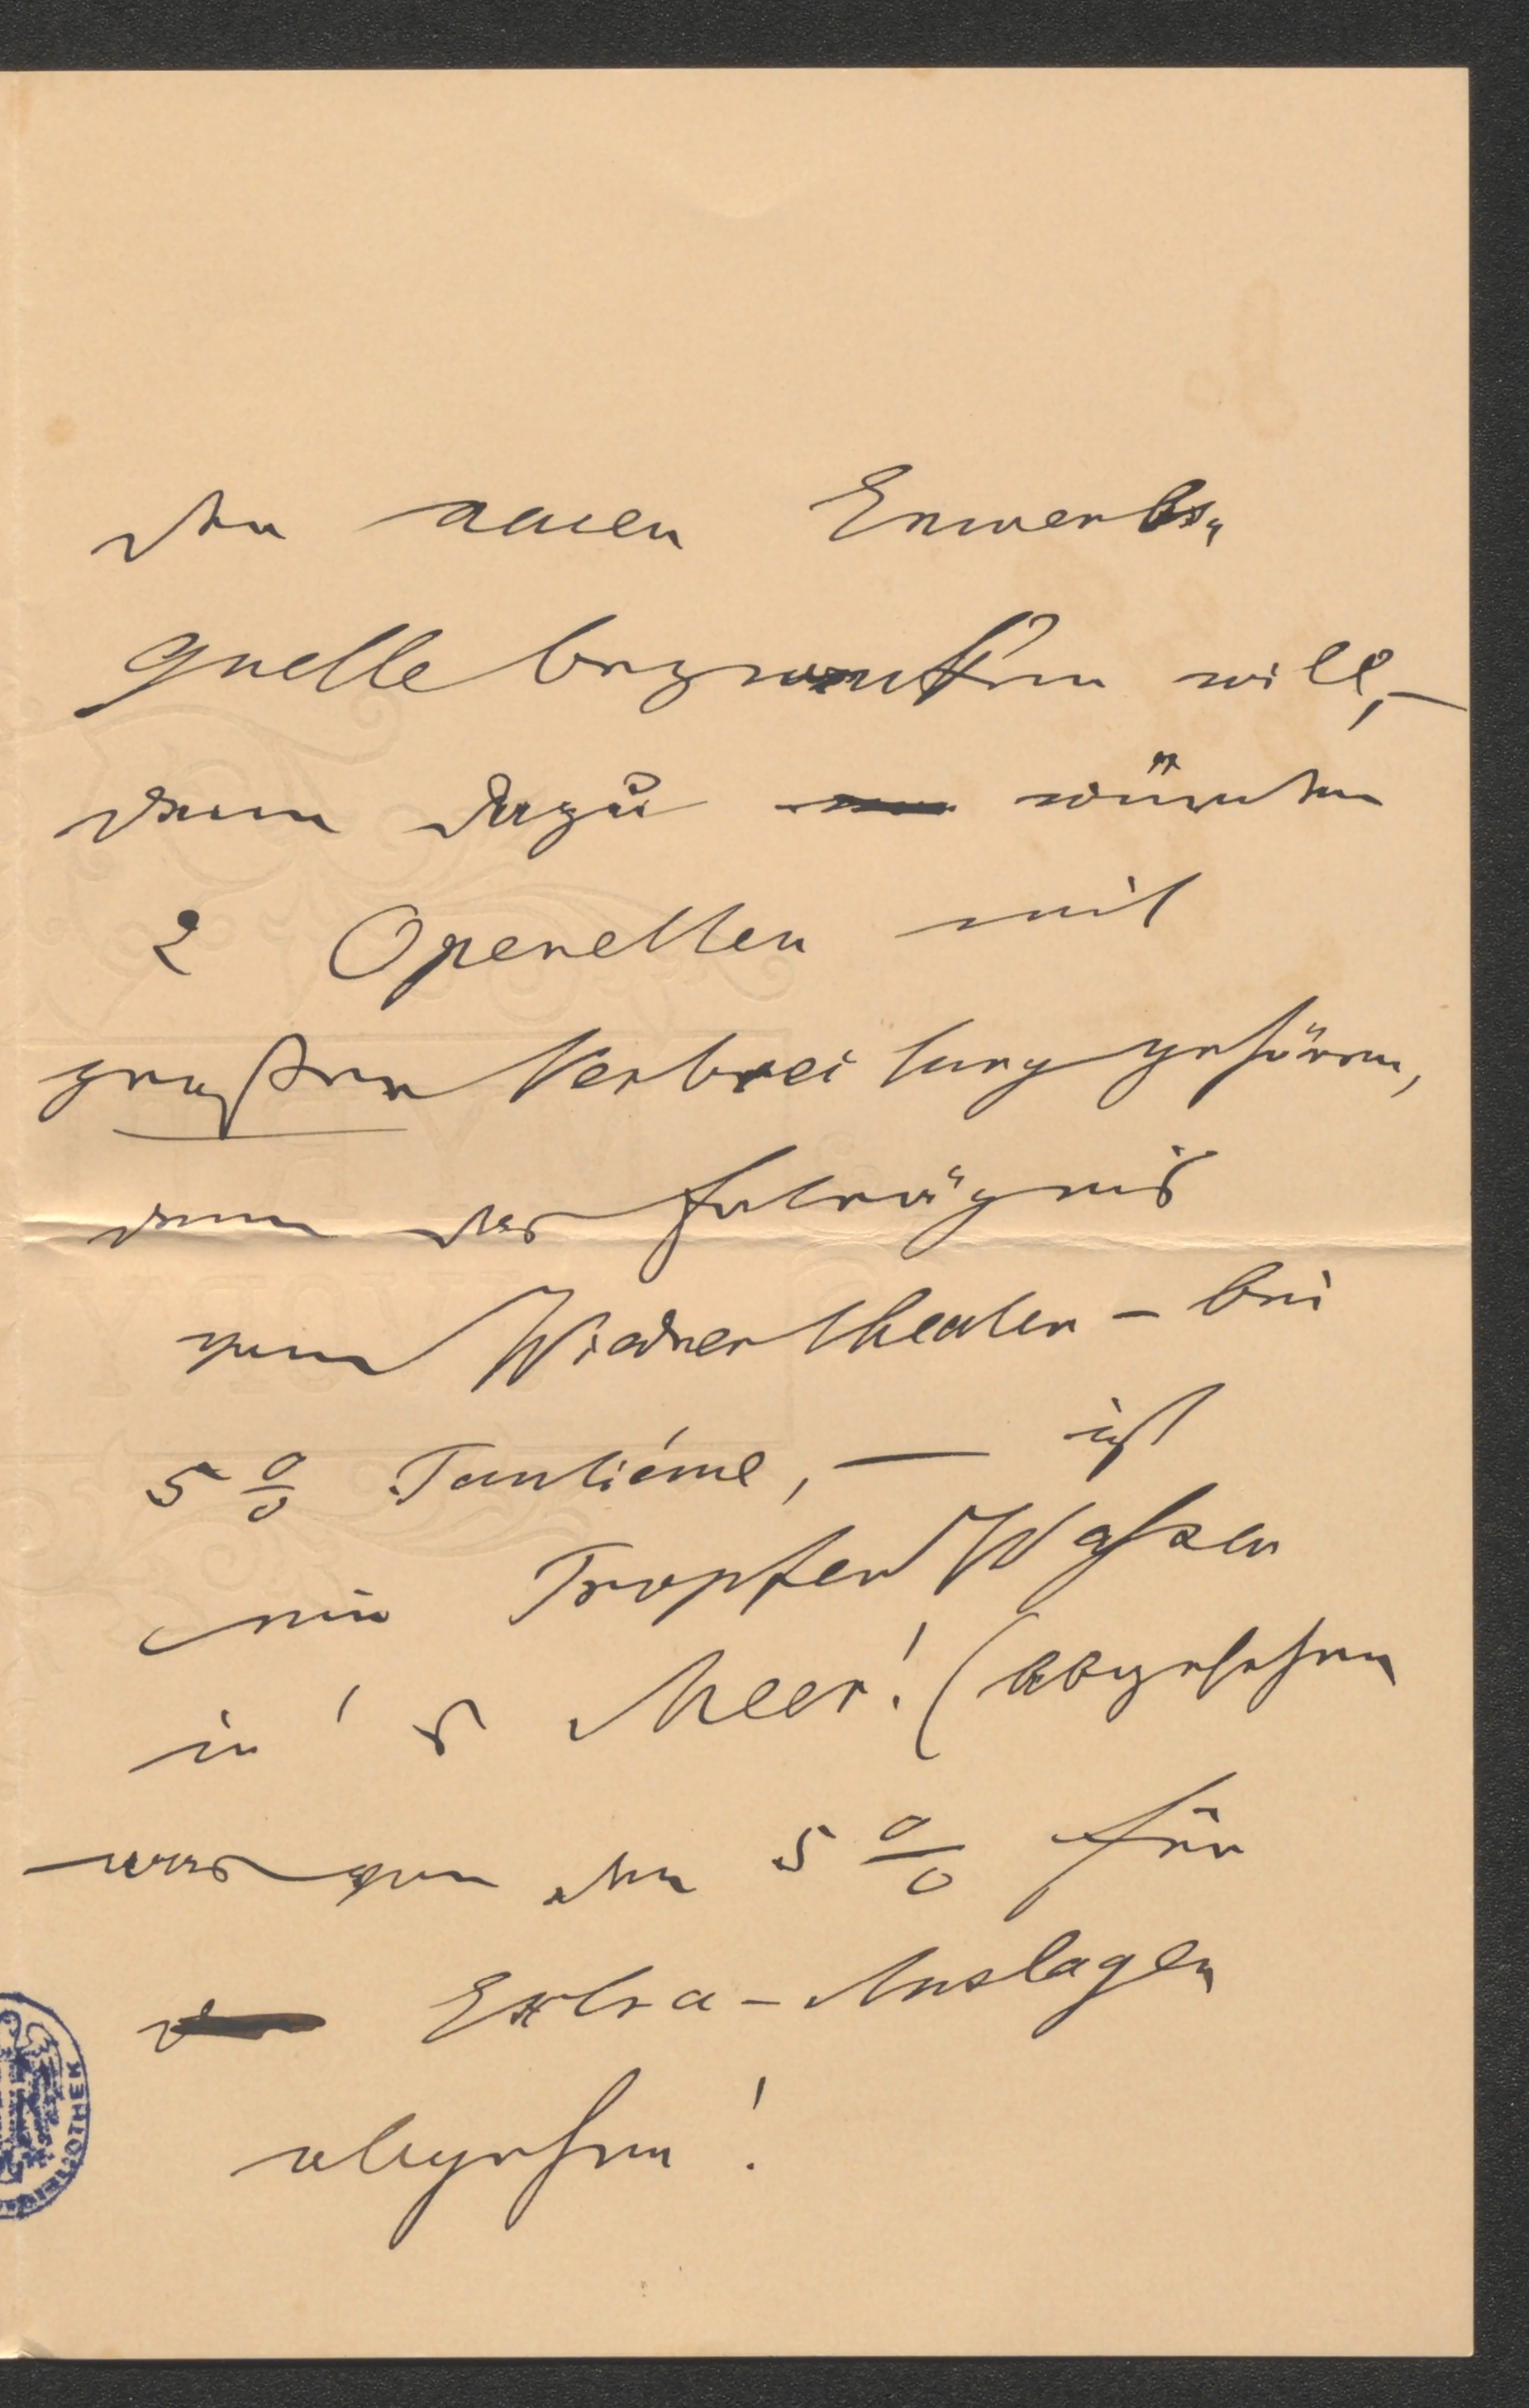 der neuen Erwerbs-
quelle will,–
denn dazu würden
2 Operetten mit
großer Verbreitung gehören,
denn das Erträgnis
vom Wiednertheater – bei
5 % Tantiéme, — ist
ein Tropfen Wasser
in's Meer! (abgesehen
was von den 5 % für
Extra-Auslagen
abgehen!